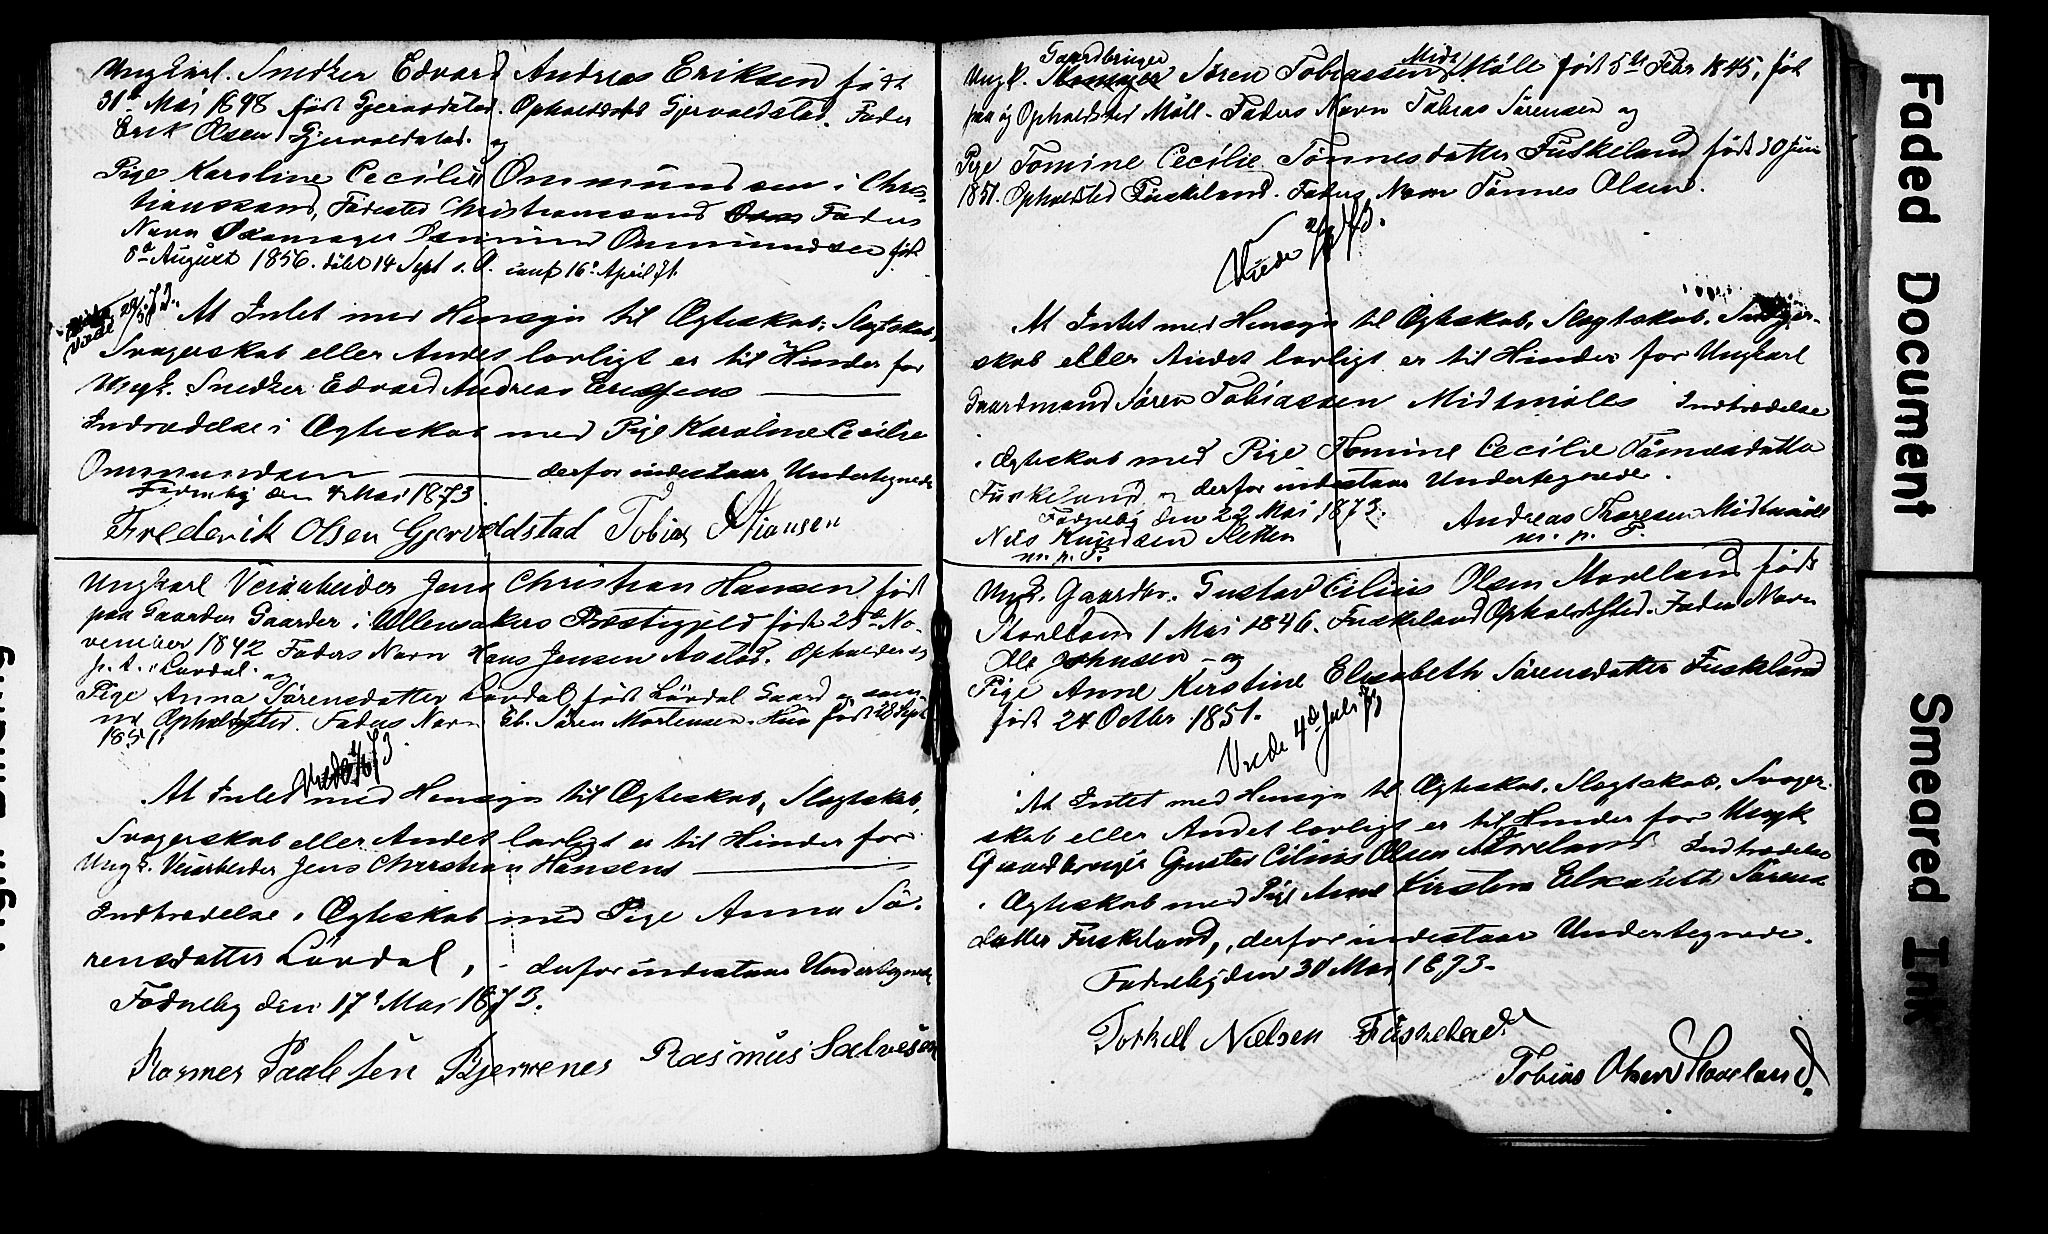 Ungkarl. Snedker Edvard Andreas Eriksen født
31te Mai 1848 født Gjervoldstad. Opholdssted Gjervoldstad. Fader
Erik Olsen Gjervoldstad. og
Pige Karoline Cecilie Ommundsen i Chris-
tianssand, Fødested Christianssand Faders
Navn Ommundsen født
8de August 1856. døbt 14 Sept s. A. conf 16de April 71.
Viede 29/5 73.
At Intet med Hensyn til Ægteskab, Slagtskab,
Svogerskab eller Andet lovligt er til Hinder for
Ungk. Snedker Edvard Andreas Eriksens
Indtrædelse i Ægteskab med Pige Karoline Cecilie
Ommundsen derfor indestaar Undertegnede
Fodneby den 4 Mai 1873
Frederik Olsen Gjervoldstad Tobias
Ungkarl Veiarbeider Jens Christian Hansen født
paa Gaarden Gaarder i Ullensakers Præstegjeld født 25de No-
vember 1842 Faders Navn Hans Jensen Aastad. Opholder sig
p. t. i Løvdal. og
Pige Anna Sørensdatter Løvdal født Løvdal Gaard og sam-
me Opholdssted. Faders Navn Gb. Søren Mortensen. Hun født 28 Sept
1851.
Viede 73.
At Intet med Hensyn til Ægteskab, Slagtskab,
Svogerskab eller Andet lovligt er til Hinder for
Ungk. Veiarbeider Jens Christian Hansens
Indtrædelse i Ægteskab med Pige Anna Sø-
rensdatter Løvdal, derfor indestaar Undertegnede
Fodneby den 17de Mai 1873.
Paalsen Bjerrenes Rasmus Salvesen
Gaardbruger
Midt
Ungk. Søren Tobiassen Møll født 5te Febr 1845, født
paa og Opholdssted Møll. Faders Navn Tobias Sørensen og
Pige Tomine Cecilie Tønnesdatter Fuskeland født 30 Juni
1851. Opholdssted Fuskeland. Faders Navn Tønnes Olsen.
Viede 73.
At Intet med Hensyn til Ægteskab, Slagtskab, Svoger-
skab eller Andet lovligt er til Hinder for Ungkarl
Gaardmand Søren Tobiassen Midtmølls Indtrædelse
i Ægteskab med Pige Tomine Cecilie Tønnesdatter
Fuskeland, derfor indestaar Undertegnede.
Fodneby den 22 Mai 1873. Andreas Thoresen Midtmøll
Nils Knudsen Sletten m. p. P.
m. p. P.
Ungk. Gaardbr. Gustav Cilius Olsen Moreland født
1 Mai 1846. Fuskeland Opholdssted. Faders Navn
Ole Johnsen og
Pige Anne Kirstine Elisabeth Sørensdatter Fuskeland
født 24 Octbr 1851.
Viede 4de Juli 73
At Intet med Hensyn til Ægteskab, Slagtskab, Svoger-
skab eller Andet lovligt er til Hinder for Ungk.
Gaardbruger Gustav Cilius Olsen Indtrædelse
i Ægteskab med Pige Anne Kirstine Elisabeth Sørens-
datter Fuskeland, derfor indestaar Undertegnede.
Fodneby den 30 Mai 1873.
Torkel Nielsen Fuskeland
Tobias Olsen
Faded Document
Smeared Ink